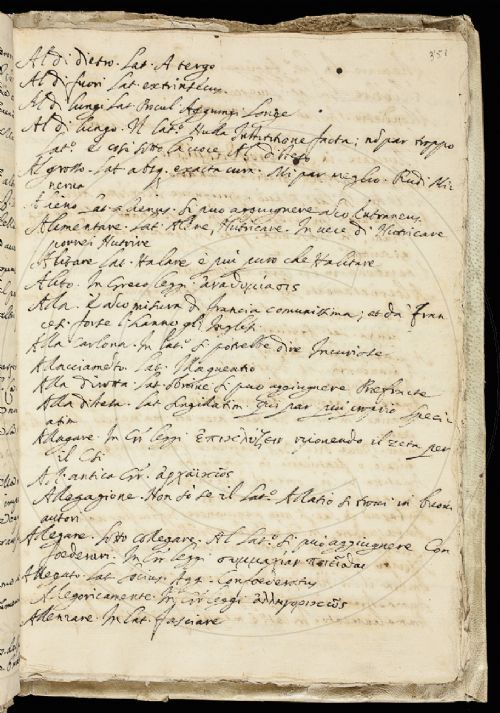 351
Al di dietro. Lat. A tergo
Al di fuori Lat. extrinsecus
Al di lungi Lat. Procul. Aggiungi Longe
Al di lungo. Il lat.º Nulla intermissione facta; nõ par troppo
lat.º e così sotto la voce Al disteso
Al grosso. Lat. abs exacta cura. Mi par meglio. Rudi Mi
nerva
Alieno Lat. alienus. Si può aggiugnere alco Extraneus
Alimentare. Lat. Alere, Nutricare. In vece di Nutricare
porrei Nutrire
Alitare Lat. Halare è più puro che Halitare
Alito. In Greco leggi ἀναθυμίασις
Alla. È alco misura di Francia comunissima; et da Fran
cesi forse l'hanno gli Inglesi
Alla Carlona. In lat.º si potrebbe dire Incuriose
Allacciamẽto. Lat. Illaqueatio
Alla dirotta. Lat. si può aggiugnere
Alla distesa. Lat. Sigillatim. più par più proprio Speci
atim
Allagare. In Gr. leggi ἐπικλύζειν ponendo il zeta per
il
All'antica Gr. ἀρχαϊκῶς
Allegagione. Non so se il Lat.º Allatio si trovi in buoni
autori
Allegare. sotto collegare. Al Lat.º si può aggiugnere Con
foederari. In Gr. leggi συμμαχίαν ποιεῖσθαι
Allegato. Lat. socius Agg. Confoederatus
Allegoricamente. In Gr. leggi ἀλληγορικῶς
Allenzare. In Lat. fasciare